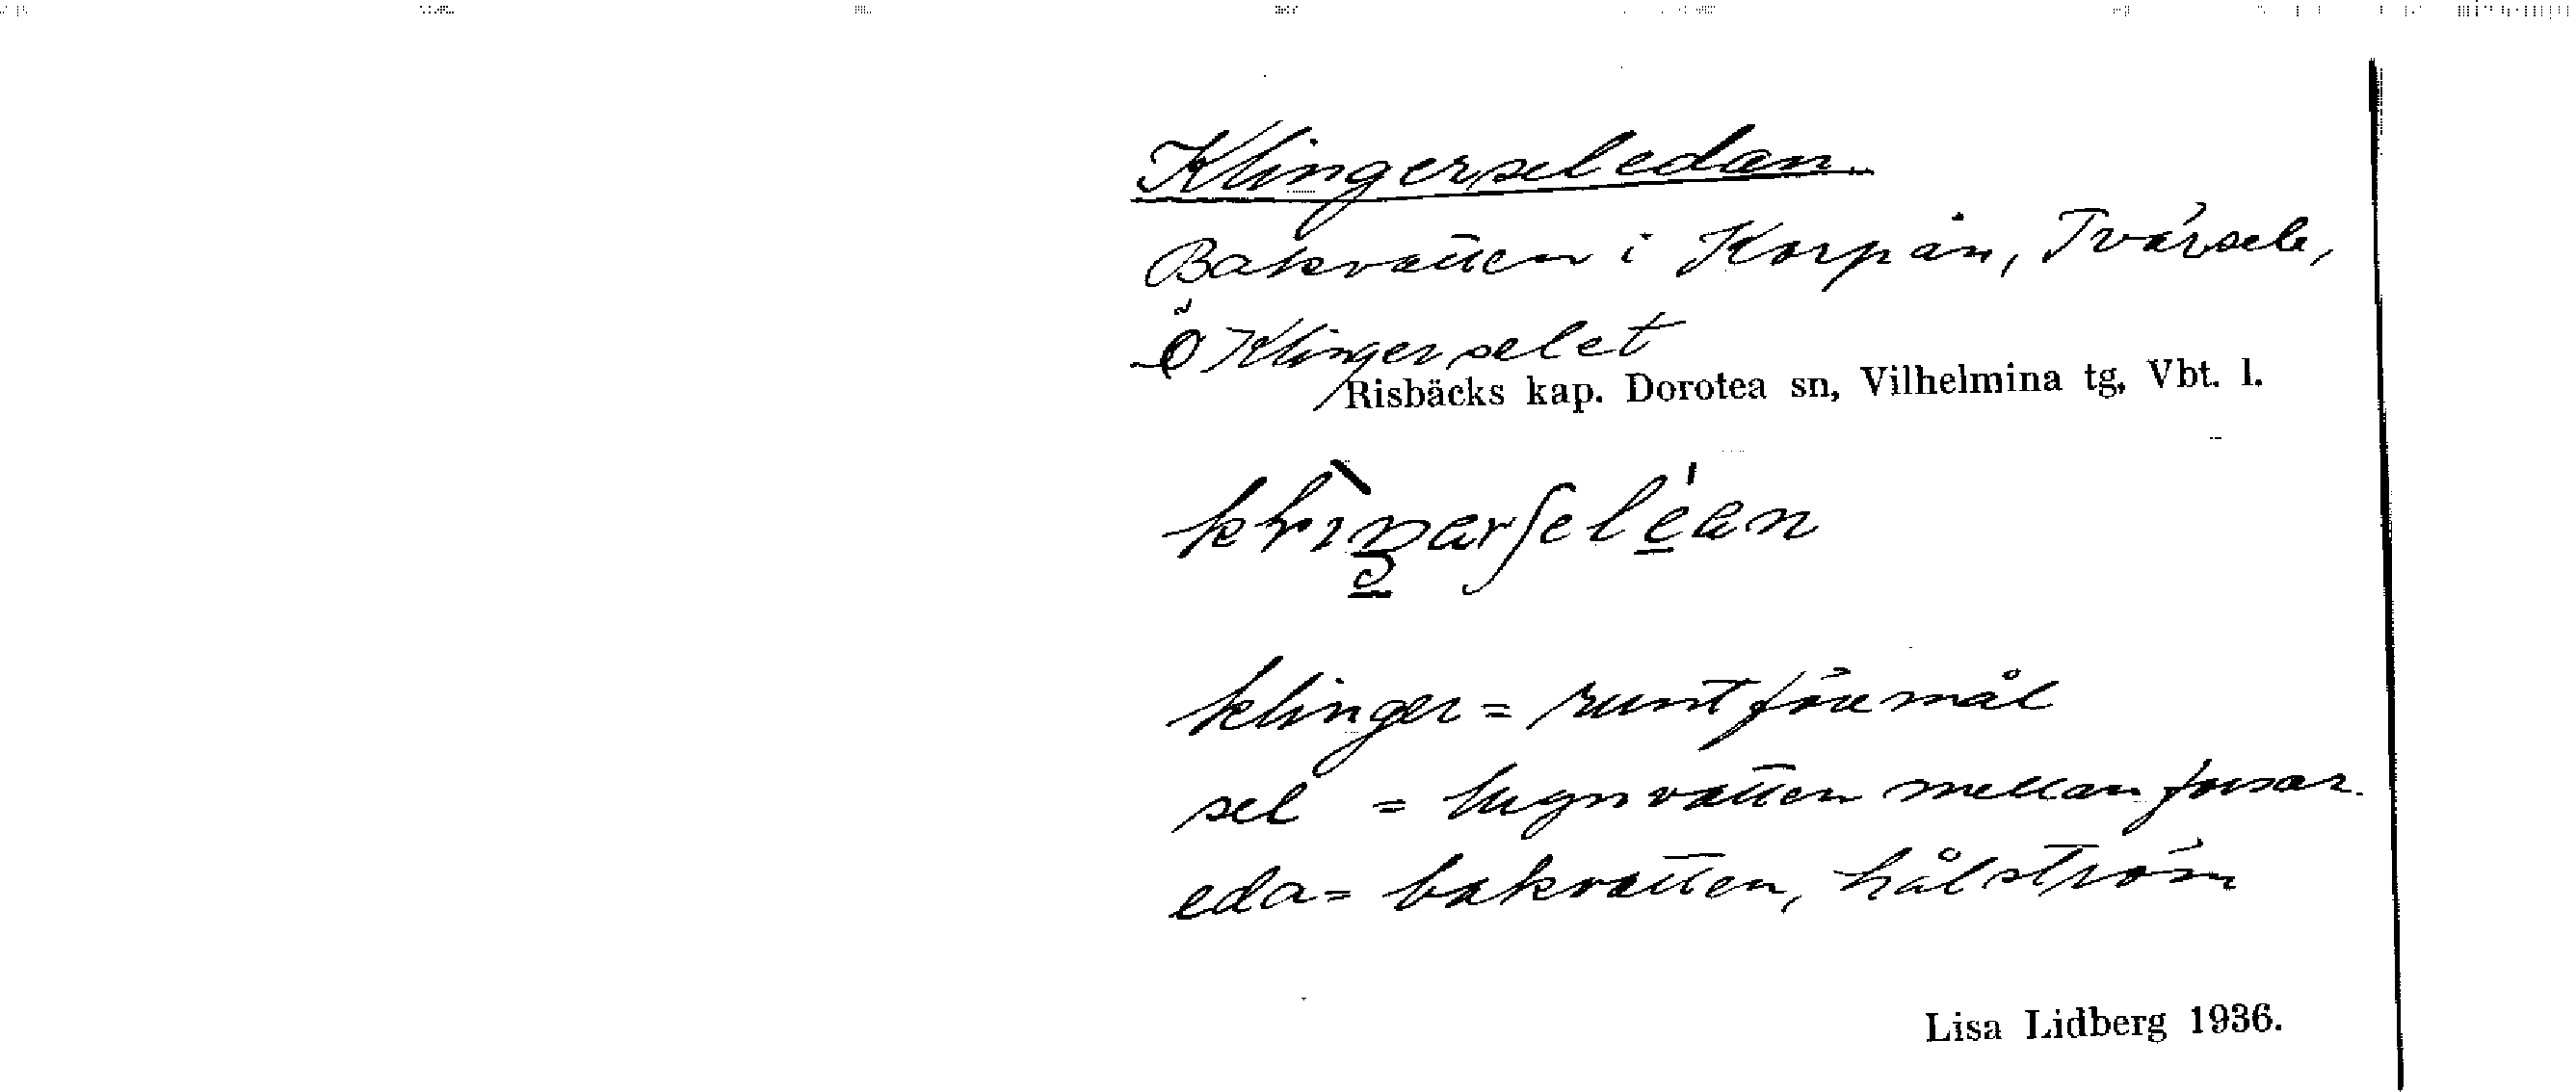 Klingerseledan
Bakvatten i Korpån, Tvärsele,
Ö Klingerselet
Risbäcks kap. Dorotea sn, Vilhelmina tg, Vbt. l.
klinger = runt föremål
sel = lugnvatten mellan forsar.
eda = bakvatten, hålström
Lisa Lidberg 1936.